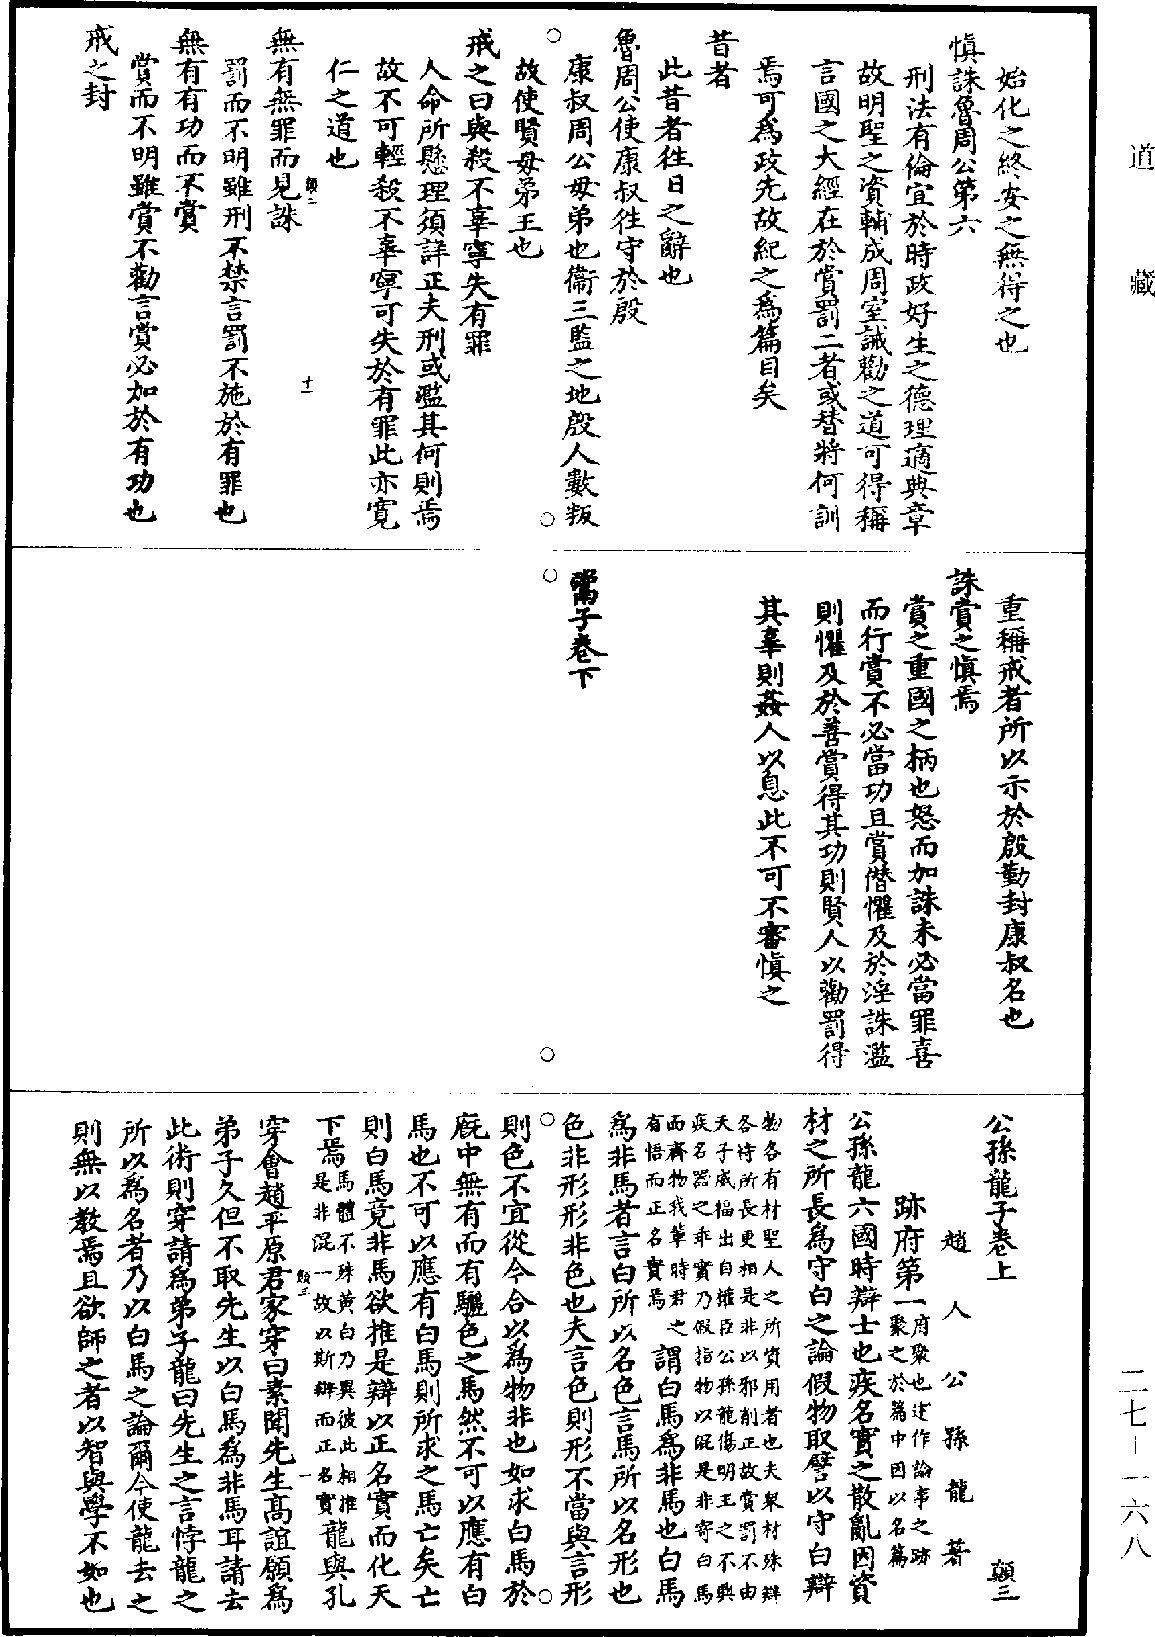 道藏
始化之終安之無得之也
愼誅魯周公第六
刑法有倫宜於時政好生之德理適典章
故明聖之資輔成周室誡勸之道可得稱
言國之大經在於賞罰二者或替將何訓
焉可爲政先故紀之爲篇目矣
昔者
此昔者往日之辭也
魯周公使康叔往守於殷
康叔周公母弟也衞三監之地殷人數叛
故使賢母弟王也
戒之曰與殺不辜寧失有罪
人命所懸理須詳正夫刑或濫其何則焉
故不可輕殺不辜寧可失於有罪此亦寬
仁之道也
顛二
十一
無有無罪而見誅
罰而不明雖刑不禁言罰不施於有罪也
無有有功而不賞
賞而不明雖賞不勸言賞必加於有功也
戒之封
重稱戒者所以示於殷勤封康叔名也
誅賞之愼焉
賞之重國之柄也怒而加誅未必當罪喜
而行賞不必當功且賞僭懼及於淫誅濫
則懼及於善賞得其功則賢人以勸罰得
其辜則姦人以息此不可不審愼之
鬻子卷下
公孫龍子卷上 顛三
趙人公孫龍著
跡府第一府聚也述作論事之跡聚之於篇中因以名篇
公孫龍六國時辯士也疾名實之散亂因資
材之所長爲守白之論假物取譬以守白辯
物各有材聖人之所資用者也夫衆材殊辯
各恃所長更相是非以邪削正故賞罰不由
天子威福出自權臣公孫龍傷明王之不興
疾名器之乖實乃假指物以混是非寄白馬
而齊物我冀時君之有悟而正名實焉謂白馬爲非馬也白馬
爲非馬者言白所以名色言馬所以名形也
色非形形非色也夫言色則形不當與言形
則色不宜從今合以爲物非也如求白馬於
廐中無有而有驪色之馬然不可以應有白
馬也不可以應有白馬則所求之馬亡矣亡
則白馬竟非馬欲推是辯以正名實而化天
下焉馬體不殊黃白乃異彼此相推是非混一故以斯辯而正名實龍與孔
顛三
一
穿會趙平原君家穿曰素聞先生高誼願爲
弟子久但不取先生以白馬爲非馬耳請去
此術則穿請爲弟子龍曰先生之言悖龍之
所以爲名者乃以白馬之論爾今使龍去之
則無以教焉且欲師之者以智與學不如也
二七－一六八